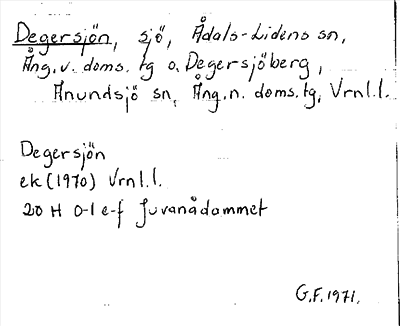 Degersjön, sjö, Ådals-Lidens sn,
Ång.v. doms. tg o. Degersjöberg,
Anundsjö sn, Ång.n. doms.tg, Vrnl.l.
Degersjön
ek (1970) Vrnl.l.
20 H 0-1 e-f Juvanådammet
G.F. 1971.